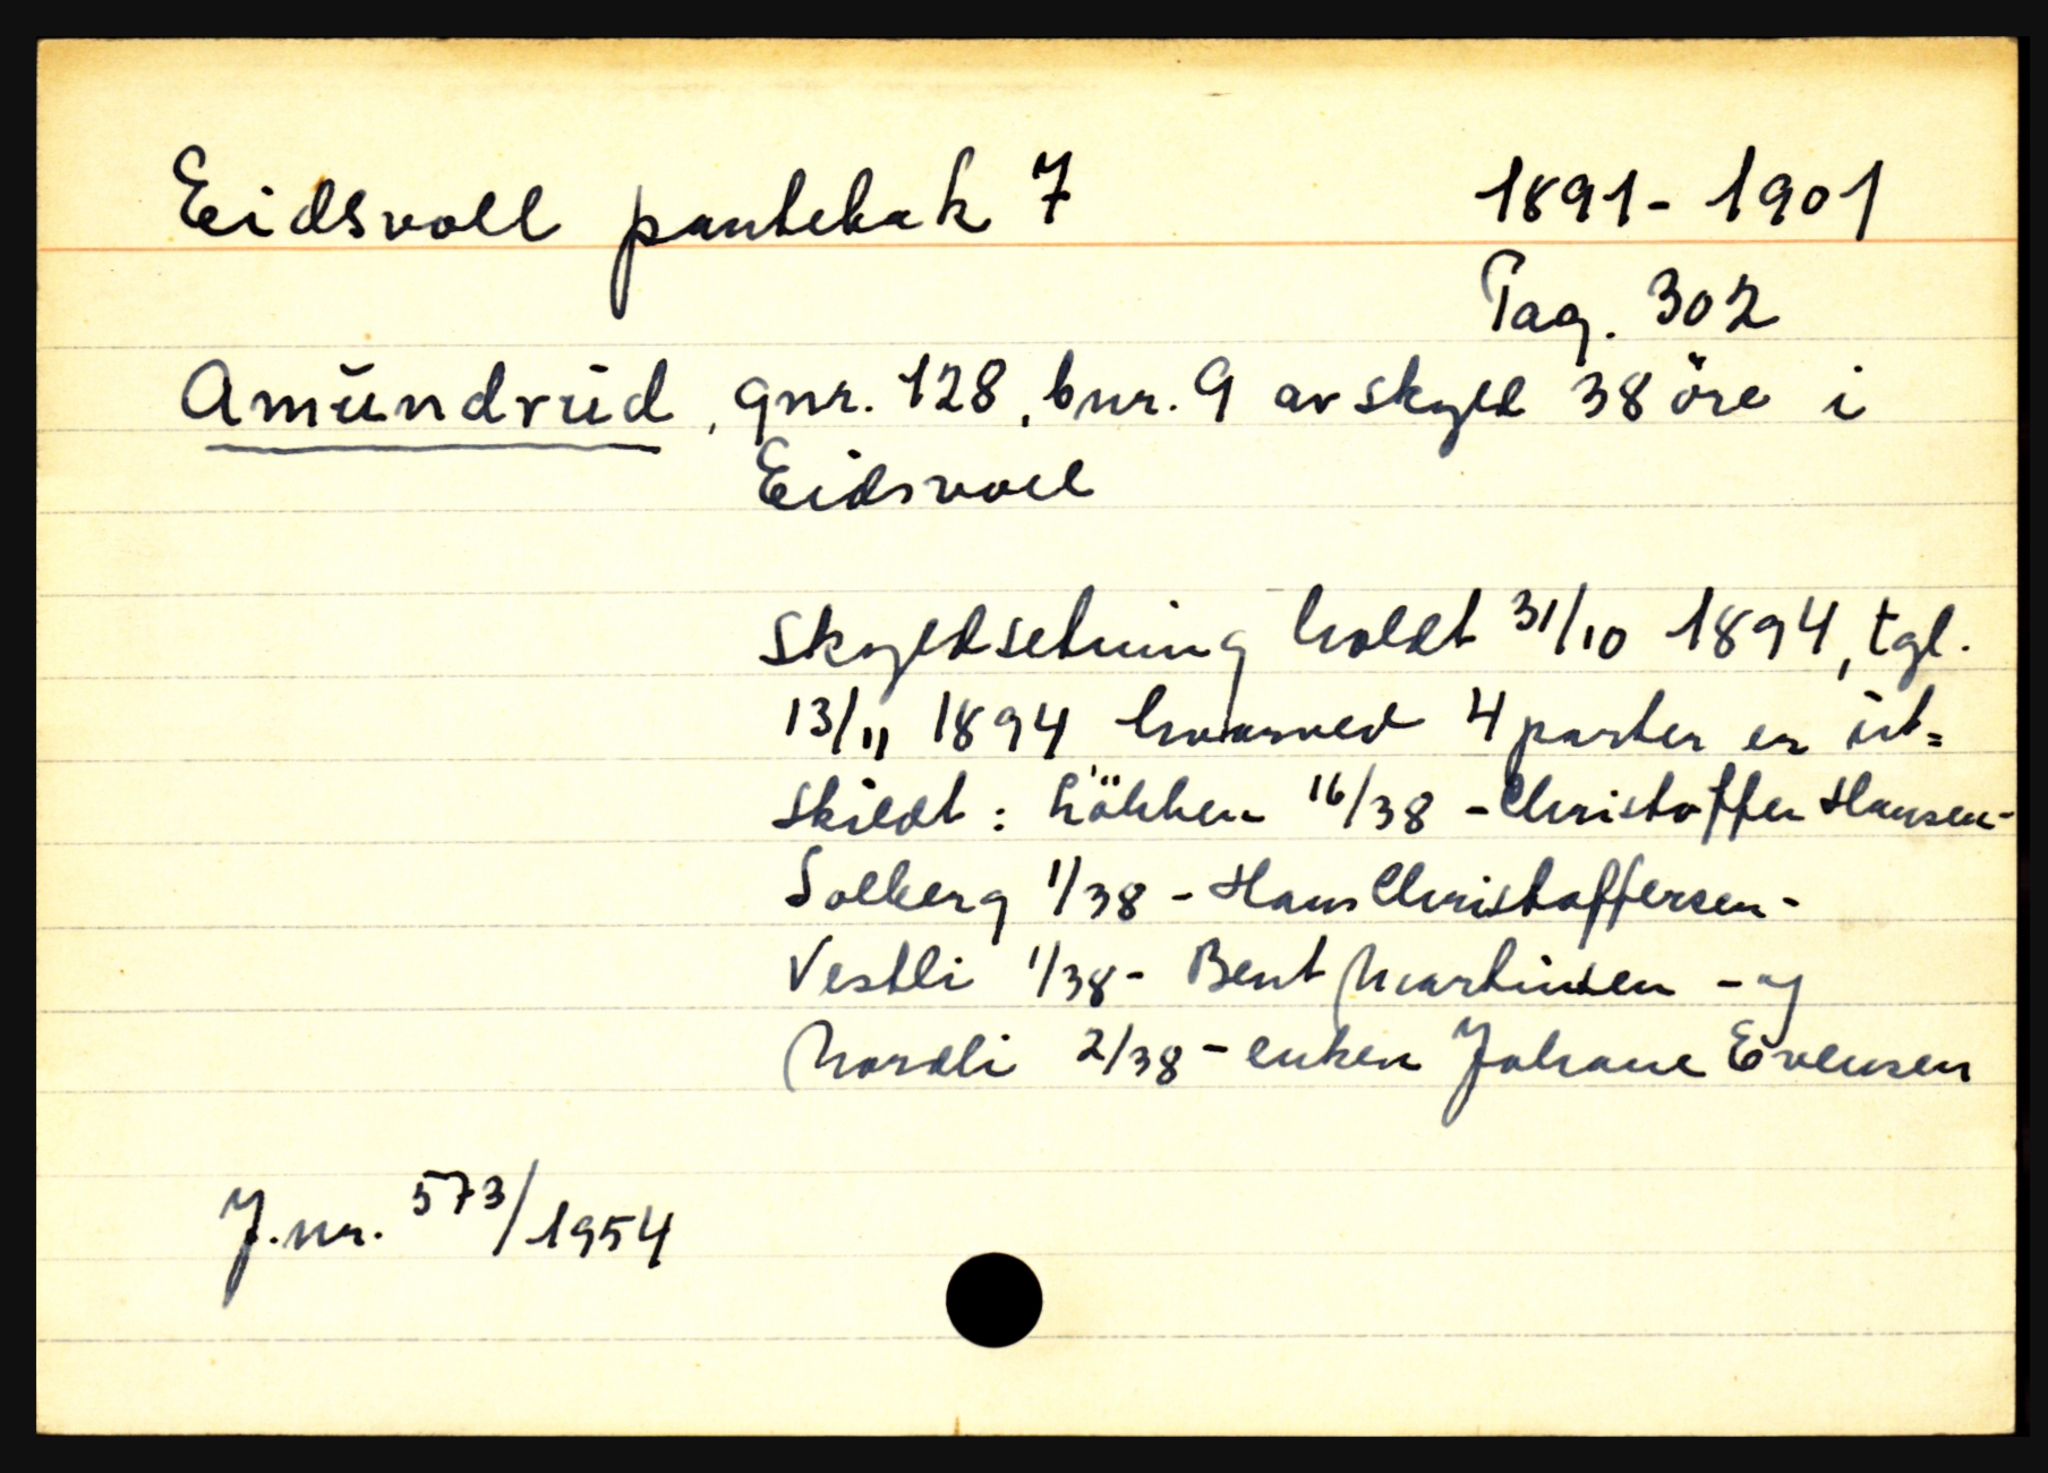 Eidsvoll pantebok 7 1891-1901
Pag. 302
Amŭndrŭd, gnr. 128, bnr. 9 av skyld 38 öre i
Eidsvoll
Skyldsetning holdt 31/10 1894, tgl.
13/11 1894 hvorved 4 parter er ŭt=
skildt: Lökken 16/38 - Christoffer Hansen -
Solberg 1/38 - Hans Christoffersen -
Vestli 1/38 - Bent Martinsen - og
Nordli 2/38 - enken Johane Evensen
J.nr. 573/1954